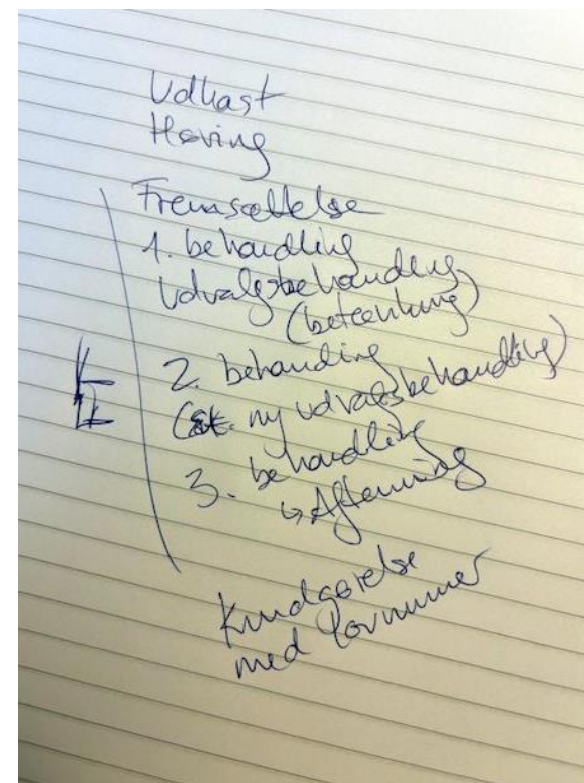 Udkast
Høring
Fremsættelse
1. behandling
Udvalgsbehandling
(betænkning)
2. behandling
ny udvalgsbehandling)
3. behandling
↳ Afstemning
Kundgørelse
med lovnummer